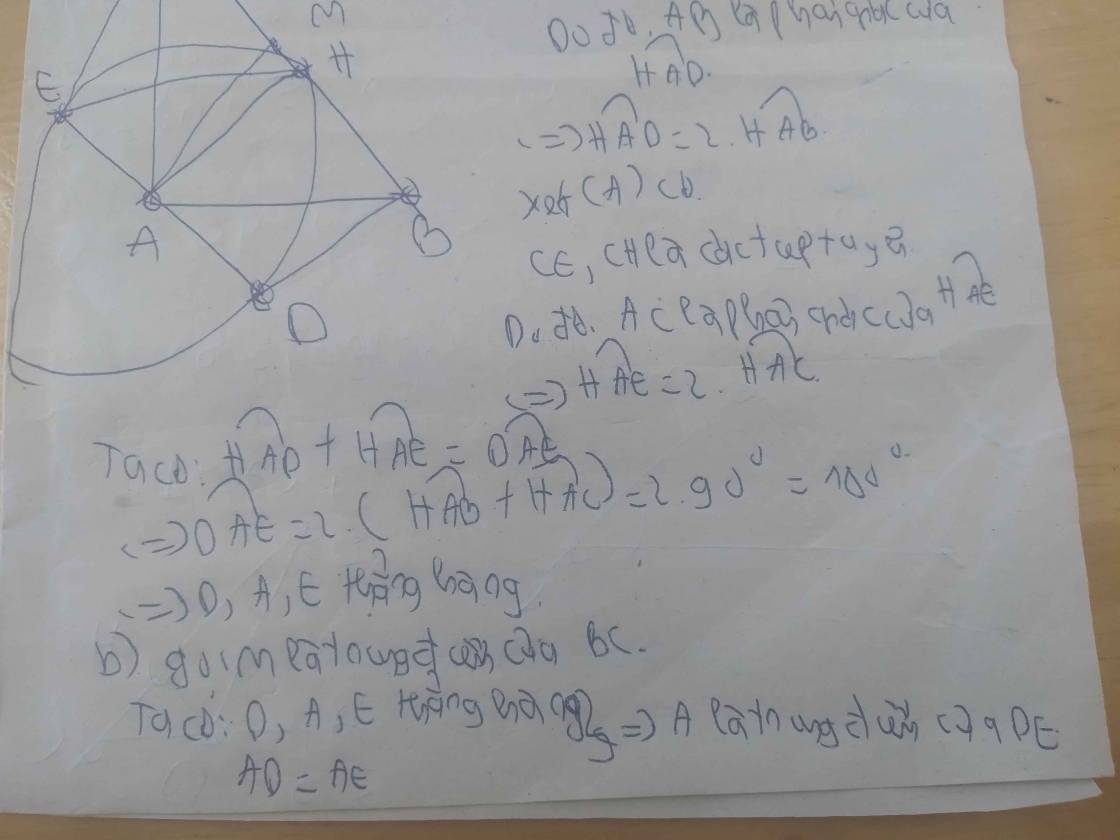 M
H
E
A
B
D
Do đó. AB là phân giác của
HAD.
<=> HAD = 2. HAB.
Xét (A) có.
CE, CH là các tiếp tuyến
Do đó. AC là phân giác của HAE
<=> HAE = 2. HAC.
Ta có: HAD + HAE = DAE
<=> DAE = 2. ( HAB + HAC) = 2.90° = 180°.
<=> D, A, E thẳng hàng.
b) gọi M là trung điểm của BC.
Ta có: D, A, E thẳng hàng => A là trung điểm của DE
AD = AE